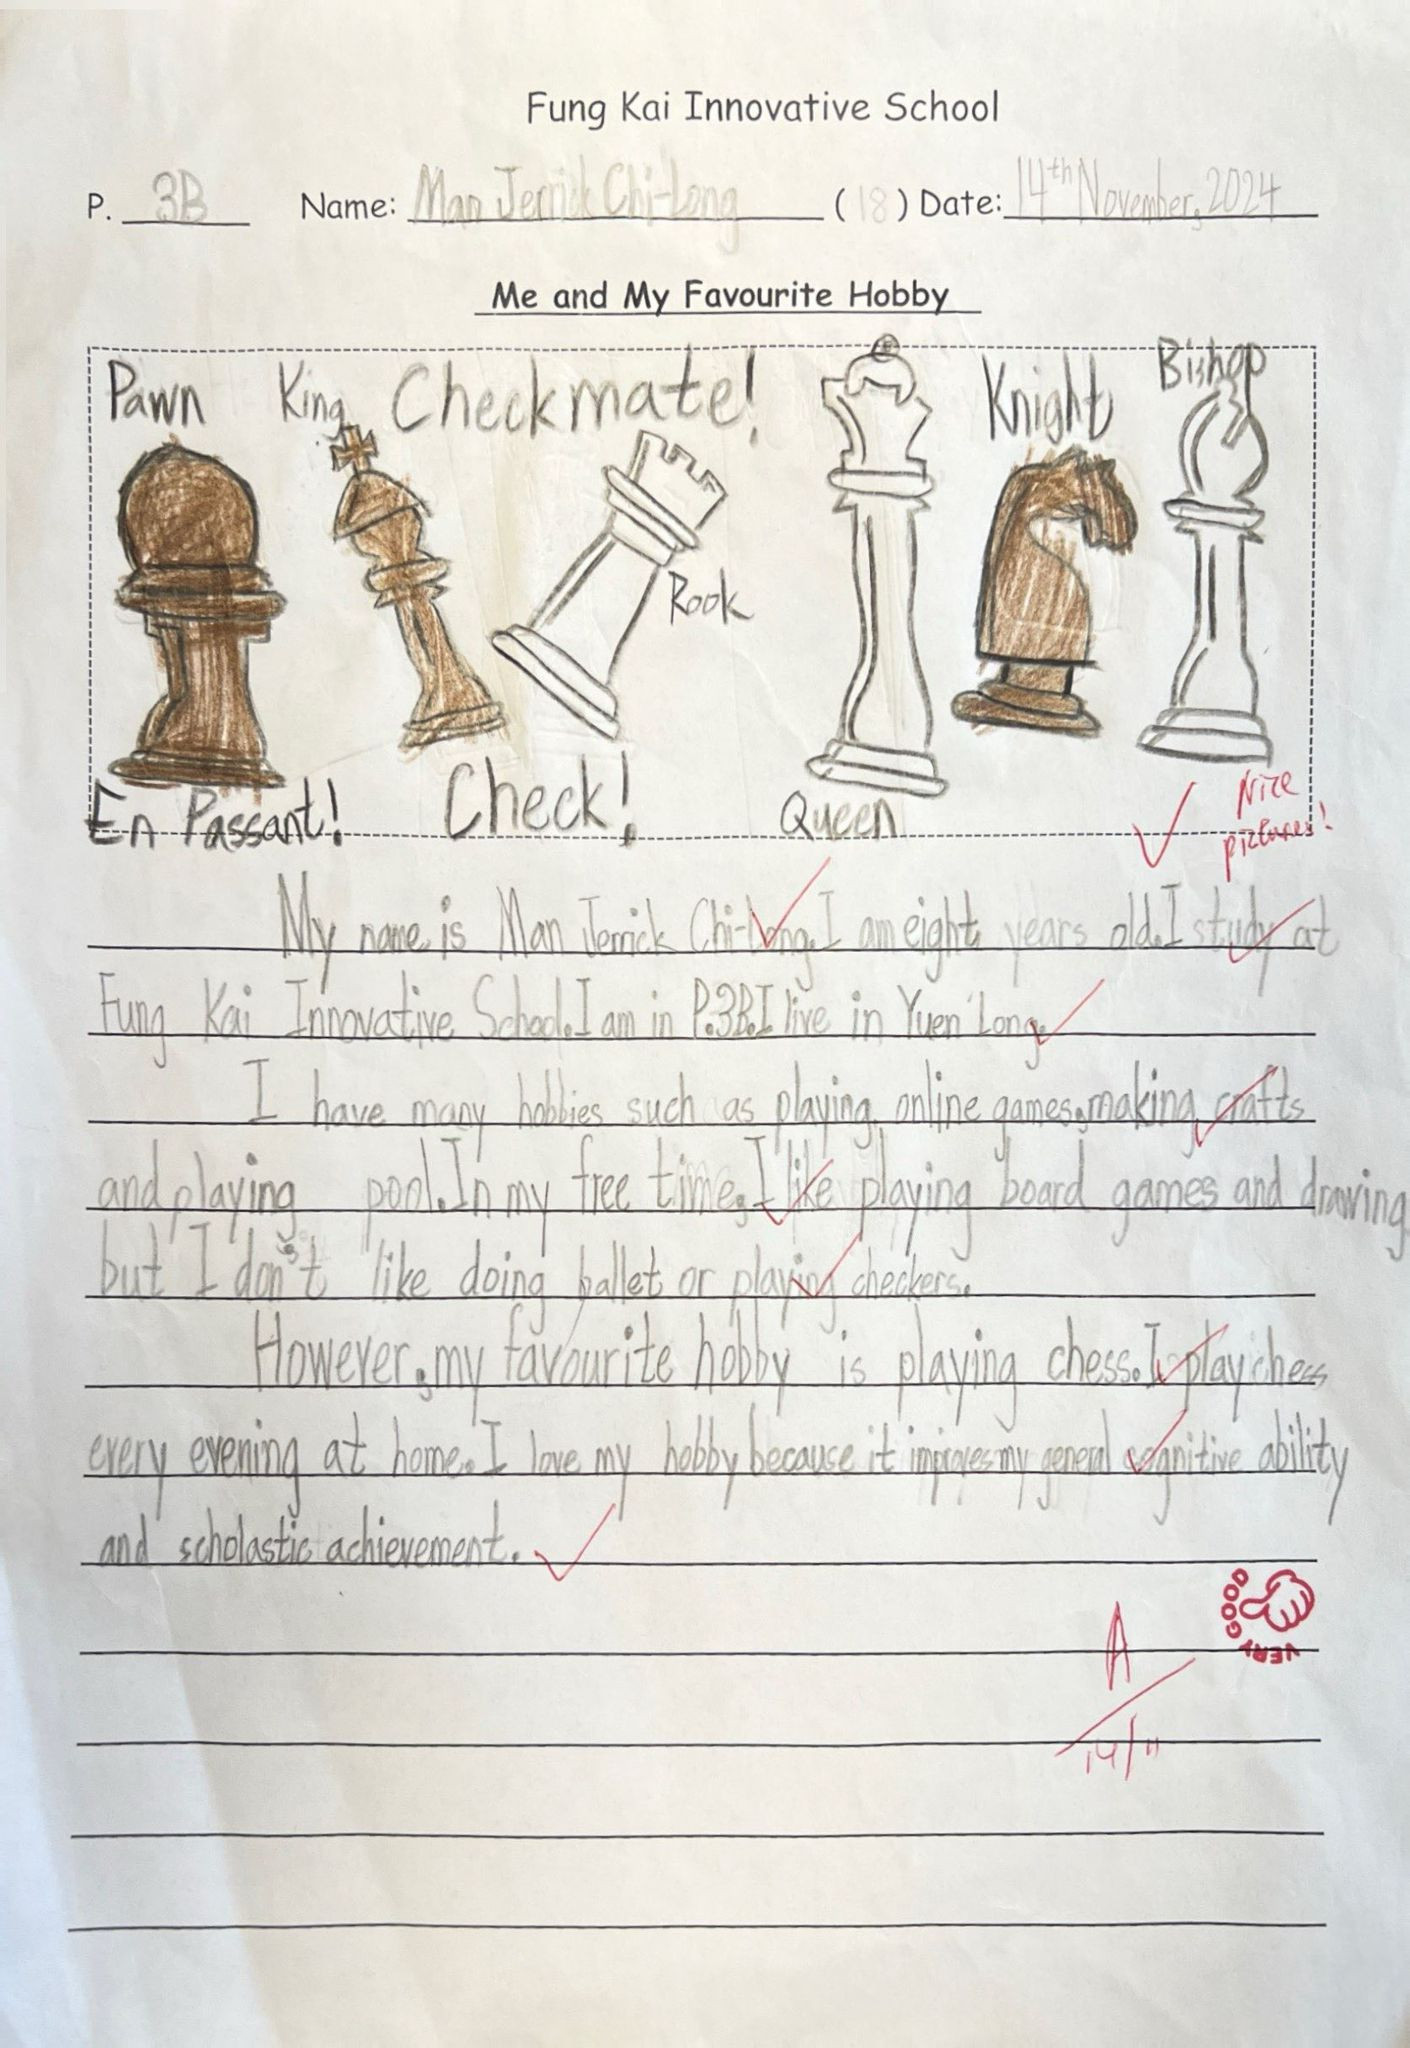 Fung Kai Innovative School
P. 3B Name: Man Jerrick Chi-Long (18) Date: 14th November, 2024
Me and My Favourite Hobby
Pawn King Checkmate! Knight Bishop
Rook
En Passant! Check! Queen
Nice
pictures!
My name is Man Jerrick Chi-Long. I am eight years old. I study at
Fung Kai Innovative School. I am in P.3B. I live in Yuen Long.
I have many hobbies such as playing online games, making crafts
and playing pool. In my free time, I like playing board games and drawing
but I don't like doing ballet or playing checkers.
However, my favourite hobby is playing chess. I play chess
every evening at home. I love my hobby because it improves my general cognitive ability
and scholastic achievement.
VERY GOOD
A
14/11